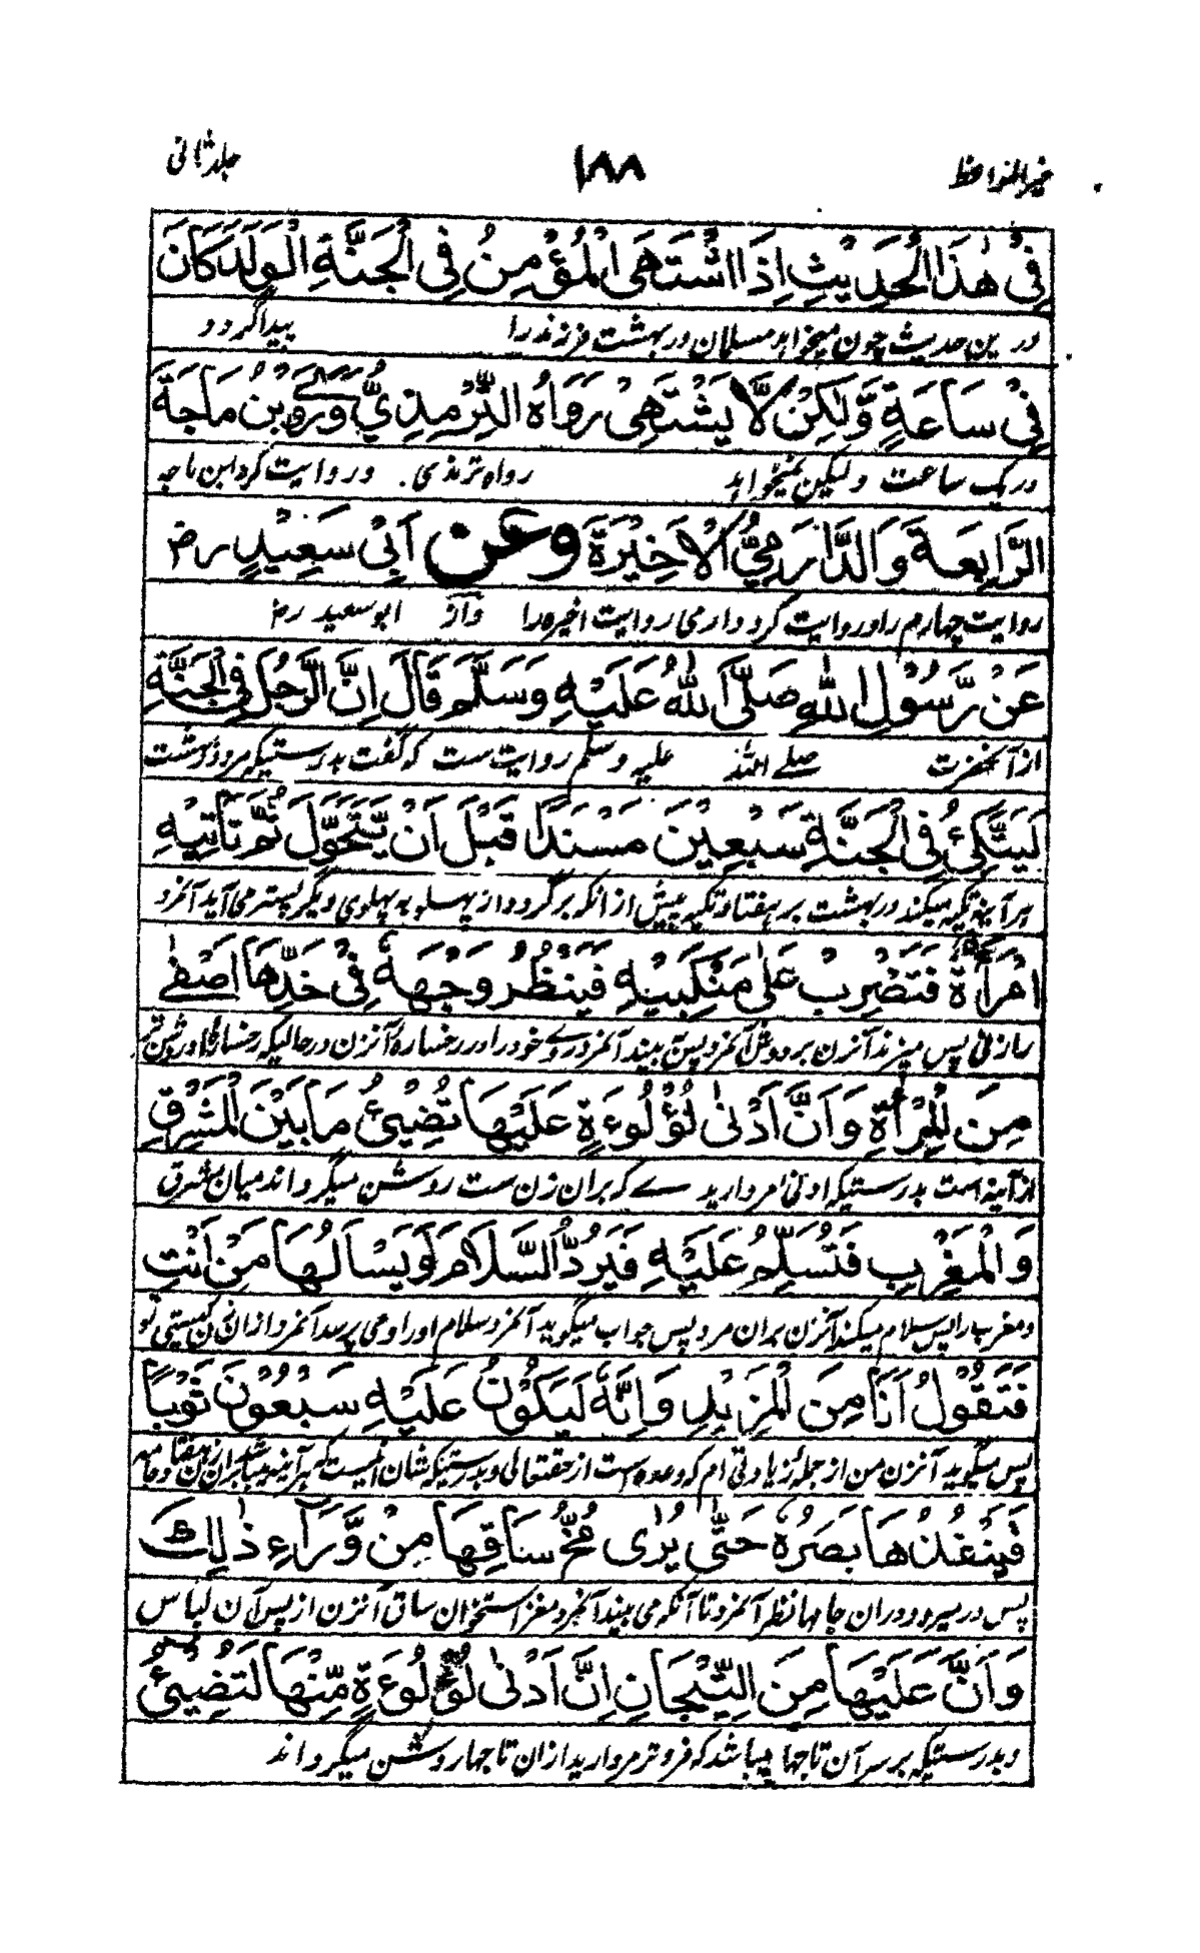 خیرالمواعظ ۱۸۸ جلد ثانی
فِیْ هٰذَا الْحَدِیْثِ اِذَا اشْتَهَی الْمُؤْمِنُ فِی الْجَنَّةِ الْوَلَدَ کَانَ
درین حدیث چون میخواهد مسلمان در بهشت فرزند را پیدا گردد
فِیْ سَاعَةٍ وَّلٰکِنْ لَّا یَشْتَهِیْ رَوَاهُ التِّرْمِذِیُّ وَرَوَی ابْنُ مَاجَةَ
در یک ساعت ولیکن نمیخواهد رواه ترمذی. و روایت کرد ابن ماجه
الرَّابِعَةَ وَالدَّارَمِیُّ الْاَخِیْرَةَ وَعَنْ اَبِیْ سَعِیْدٍ رض
روایت چهارم را و روایت کرد دارمی روایت اخیره را و از ابو سعید رض
عَنْ رَّسُوْلِ اللّٰهِ صَلَّی اللّٰهُ عَلَیْهِ وَسَلَّمَ قَالَ اِنَّ الرَّجُلَ فِی الْجَنَّةِ
از آنحضرت صلے الله علیه و سلم روایت ست که گفت بدرستیکه مرد در بهشت
لَیَتَّکِئُ فِی الْجَنَّةِ سَبْعِیْنَ مَسْنَدًا قَبْلَ اَنْ یَّتَحَوَّلَ ثُمَّ تَأْتِیْهِ
هر آینه تکیه میکند در بهشت بر هفتاد تکیه پیش از انکه برگردد از پهلو به پهلوی دیگر پستر می آید آنمرد
امْرَأَةٌ فَتَضْرِبُ عَلٰی مَنْکِبَیْهِ فَیَنْظُرُ وَجْهَهٗ فِیْ خَدِّهَا اَصْفٰی
را زنی پس میزند آنزن بر دوش آنمرد پس می بیند آنمرد روے خود را در رخساره آنزن در حالیکه رخساره او روشن تر
مِنَ الْمِرْأَةِ وَاَنَّ اَدْنٰی لُؤْلُوءَةٍ عَلَیْهَا تُضِیْئُ مَا بَیْنَ الْمَشْرِقِ
از آینه است بدرستیکه ادنی مروارید ے که بران زن ست روشن میگرداند میان مشرق
وَالْمَغْرِبِ فَتُسَلِّمُ عَلَیْهِ فَیَرُدُّ السَّلَامَ وَیَسْأَلُهَا مَنْ اَنْتِ
و مغرب را پس سلام میکند آنزن بران مرد پس جواب میگوید آنمرد سلام او را و می پرسد آنمرد ازان زن کیستی تو
فَتَقُوْلُ اَنَا مِنَ الْمَزِیْدِ وَاِنَّهٗ لَیَکُوْنُ عَلَیْهِ سَبْعُوْنَ ثَوْبًا
پس میگوید آنزن من از جمله زیادتی ام که وعده است از حقتعالی و بدرستیکه شان اینست که هر آینه میباشد بران زن هفتاد جامه
فَیَنْفُذُهَا بَصَرُهٗ حَتّٰی یُرٰی مُخُّ سَاقِهَا مِنْ وَّرَآءِ ذٰلِكَ
پس در میرود دران جامها نظر آنمرد تا آنکه می بیند آنمرد مغز استخوان ساق آنزن از پس آن لباس
وَاَنَّ عَلَیْهَا مِنَ التِّیْجَانِ اِنَّ اَدْنٰی لُؤْلُوءَةٍ مِّنْهَا لَتُضِیْئُ
و بدرستیکه بر سر آن تاجها میباشد که فروتر مروارید ازان تاجها روشن میگرداند